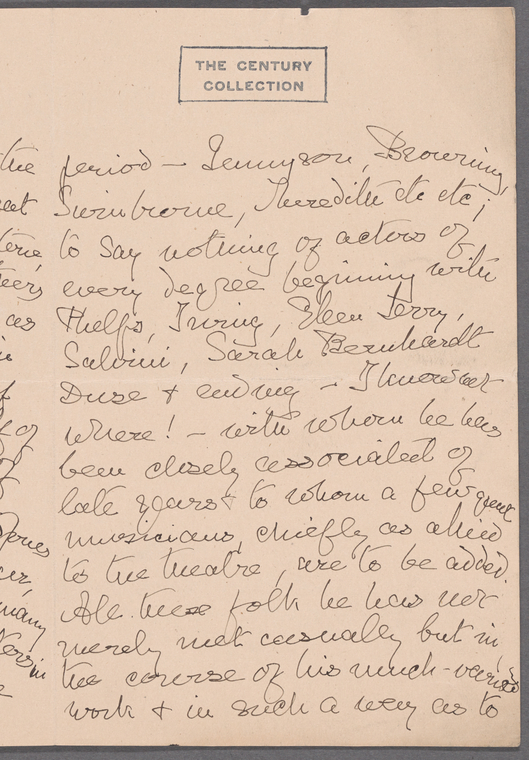 THE CENTURY
COLLECTION
the period – Tennyson, Browning,
Swinburne, Meredith etc etc;
to say nothing of actors of
every degree beginning with
Phelps, Irving, Ellen Terry,
Salvini, Sarah Bernhardt
Duse & ending – I know not
where! – with whom he has
been closely associated of
late years & to whom a few great
musicians, chiefly as allied
to the theatre, are to be added.
All these folk he has not
merely met casually but in
the course of his much-varied
work & in such a way as to
as
of
of
Jones
many
in